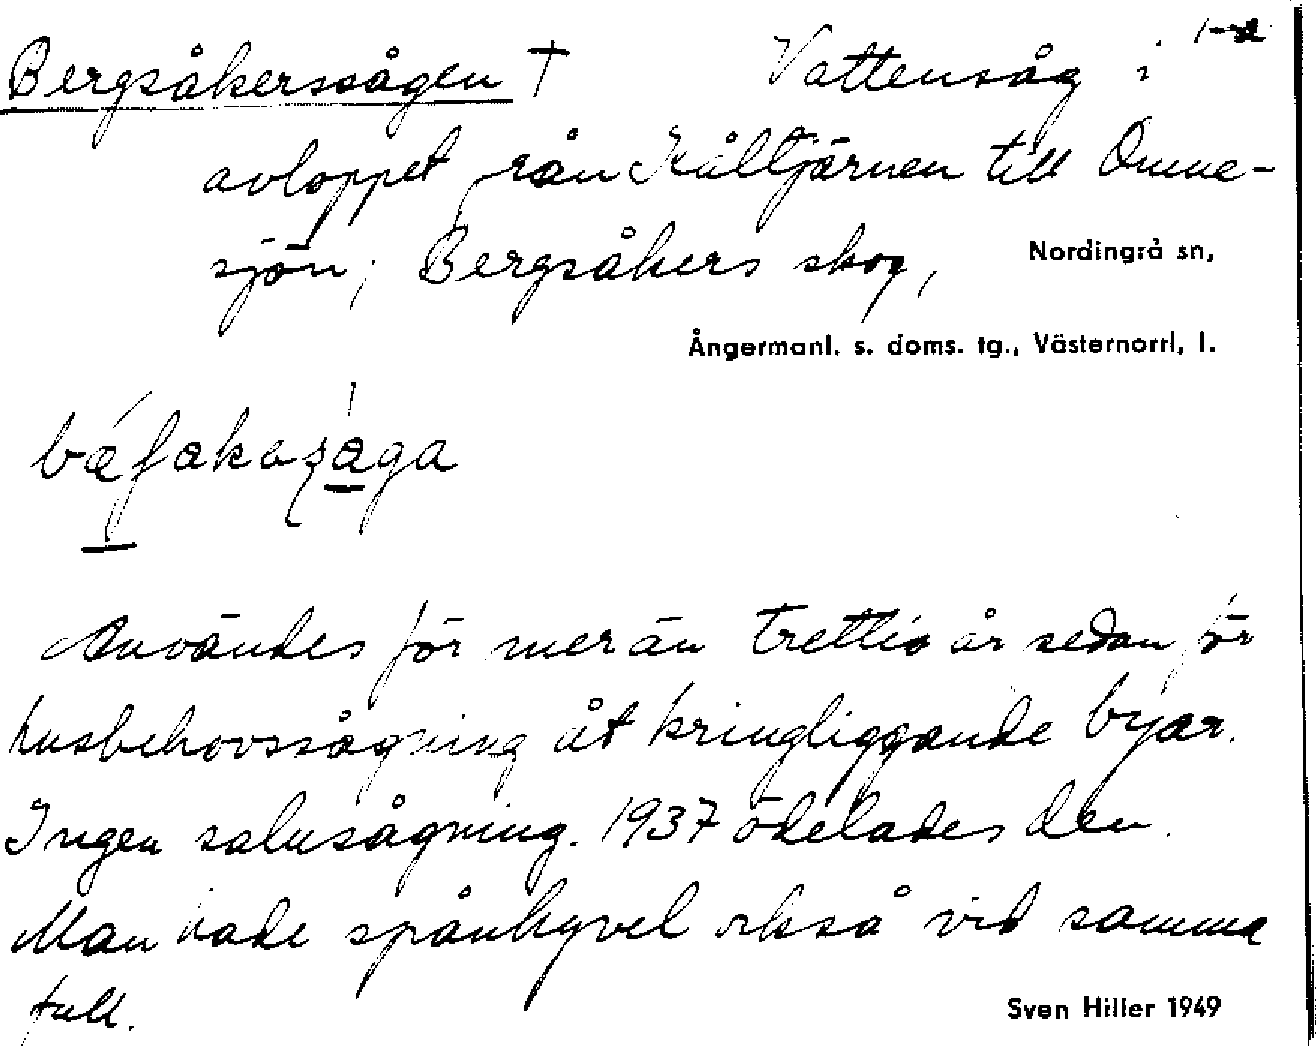 Bergsåkerssågen † Vattensåg i
avloppet från Kåltjärnen till Omne-
sjön; Bergsåkers skog, Nordingrå sn,
Ångermanl. s. doms. tg., Västernorrl, l.
Användes för mer än trettio år sedan för
husbehovssågning åt kringliggande byar.
Ingen salusågning. 1937 ödelades den.
Man hade spånhyvel också vid samma
fall.
Sven Hiller 1949